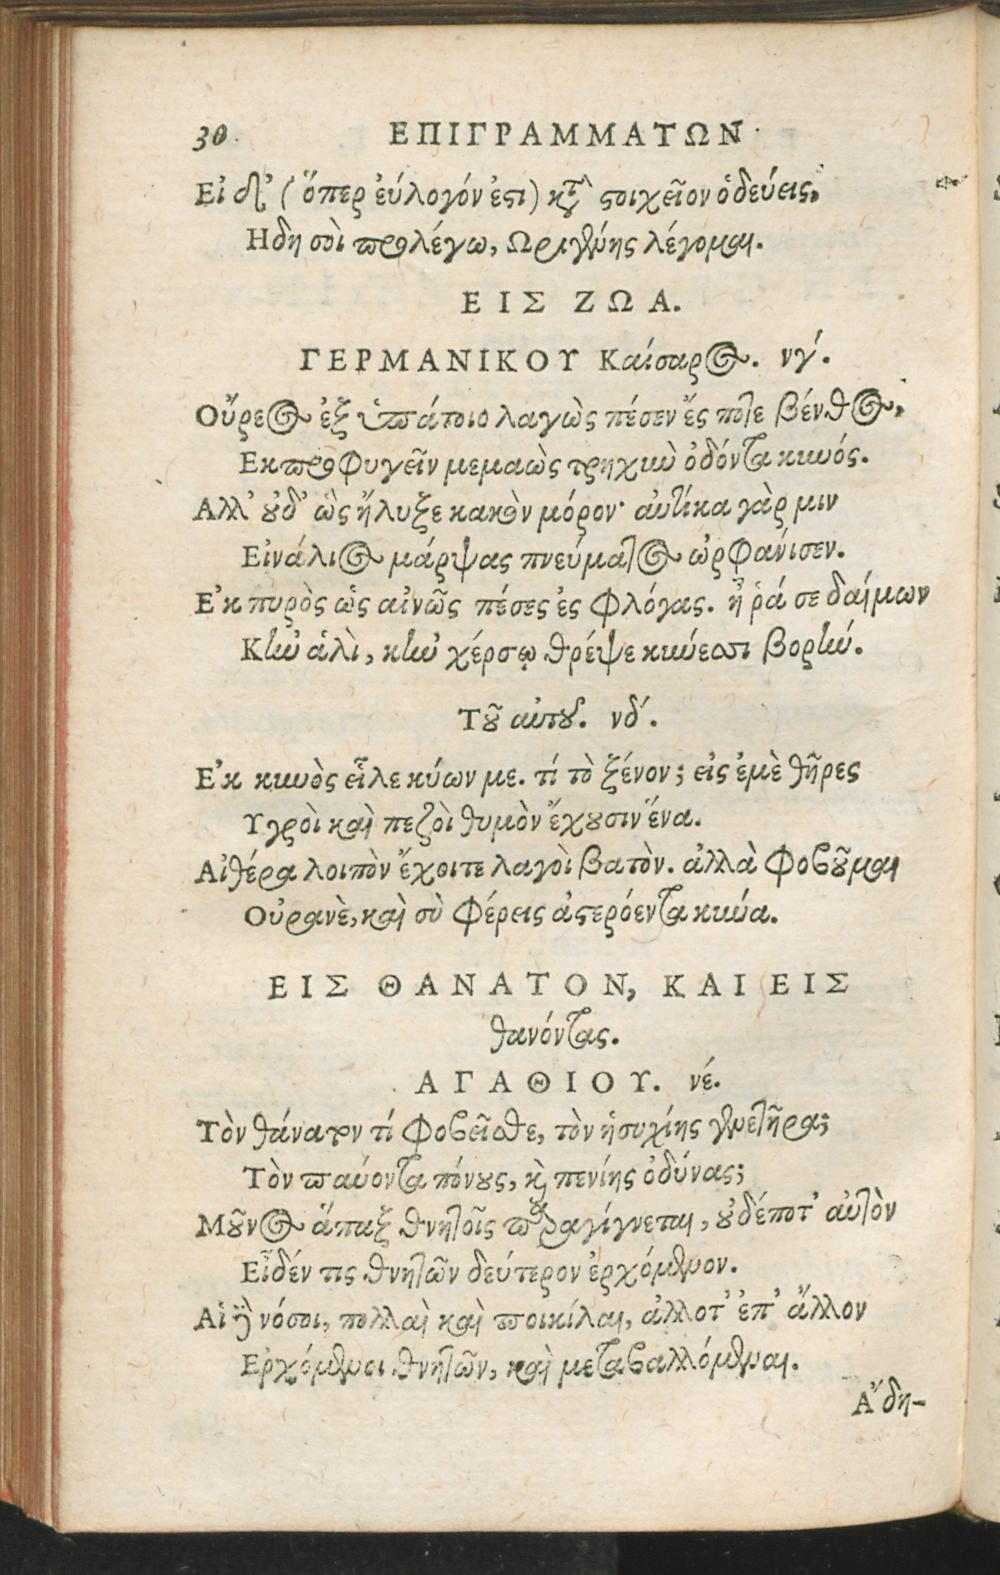 30 ΕΠΙΓΡΑΜΜΑΤΩΝ
Εἰ δ᾽ (ὅπερ ἐύλογόν ἐστι) κατὰ στοιχεῖον ὁδεύεις,
Ηδη σοὶ προλέγω, Ωριγένης λέγομαι.
ΕΙΣ ΖΩΑ.
ΓΕΡΜΑΝΙΚΟΥ Καίσαρος. νγ΄.
Οὔρεος ἐξ ὑπάτοιο λαγὼς πέσεν ἔς ποτε βένθος,
Εκπροφυγεῖν μεμαὼς τρηχὺν ὀδόντα κυνός.
Αλλ᾽ οὐδ᾽ ὣς ἤλυξε κακὸν μόρον· αὐτίκα γὰρ μιν
Εἰνάλιος μάρψας πνεύματος ὠρφάνισεν.
Ε᾽κ πυρὸς ὡς αἰνῶς πέσες ἐς φλόγας. ἦ ῥά σε δαίμων
Κἠν ἁλὶ, κἠν χέρσῳ θρέψε κυνέεσσι βορήν.
Τοῦ αὐτοῦ. νδ΄.
Ε᾽κ κυνὸς εἷλε κύων με. τί τὸ ξένον; εἰς ἐμὲ θῆρες
Υγροὶ καὶ πεζοὶ θυμὸν ἔχουσιν ἕνα.
Αἰθέρα λοιπὸν ἔχοιτε λαγοὶ βατὸν. ἀλλὰ φοβοῦμαι
Οὐρανὲ, καὶ σὺ φέρεις ἀστερόεντα κύνα.
ΕΙΣ ΘΑΝΑΤΟΝ, ΚΑΙ ΕΙΣ
θανόντας.
ΑΓΑΘΙΟΥ. νέ.
Τὸν θάνατον τί φοβεῖσθε, τὸν ἡσυχίης γενετῆρα;
Τὸν παύοντα πόνους, καὶ πενίης ὀδύνας;
Μοῦνος ἅπαξ θνητοῖς παραγίγνεται, οὐδέποτ᾽ αὐτὸν
Εἶδέν τις θνητῶν δεύτερον ἐρχόμενον.
Αἱ δὲ νόσοι, πολλαὶ καὶ ποικίλαι, ἀλλοτ᾽ ἐπ᾽ ἄλλον
Ερχόμεναι θνητῶν, καὶ μεταβαλλόμεναι.
Α῎δη-